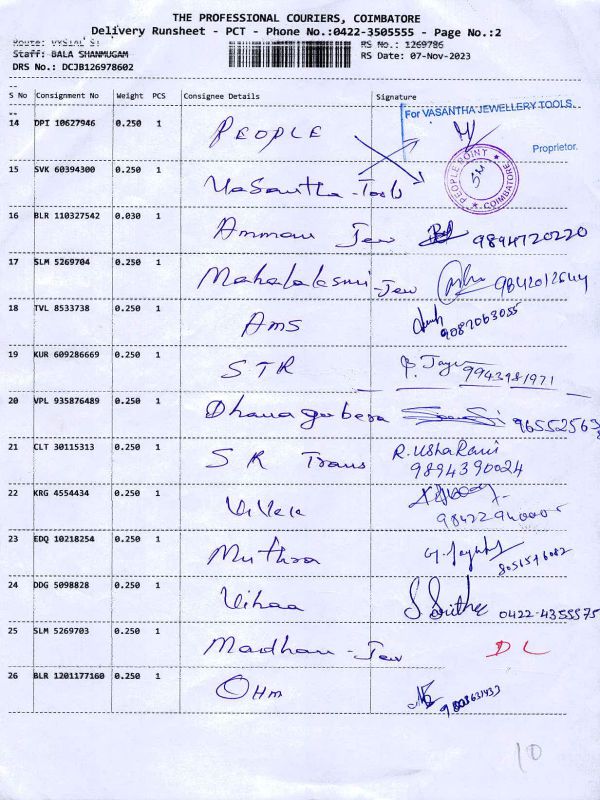 THE PROFESSIONAL COURIERS, COIMBATORE
Delivery Runsheet - PCT - Phone No.:0422-3505555 - Page No.:2
Route: VYSIAL ST
RS No.: 1269786
Staff: BALA SHANMUGAM
RS Date: 07-Nov-2023
DRS No.: DCJB126978602
S No Consignment No Weight PCS Consignee Details Signature
For VASANTHA JEWELLERY TOOLS
14 DPI 10627946 0.250 1 PEOPLE
Proprietor.
PEOPLE POINT ★ COIMBATORE ★
15 SVK 60394300 0.250 1 Vasantha - Tools
16 BLR 110327542 0.030 1 Amman Jew 9894720220
17 SLM 5269704 0.250 1 Mahalaksmi - Jew 9842012644
18 TVL 8533738 0.250 1 Ams 9087063055
19 KUR 609286669 0.250 1 STR 9943981971
20 VPL 935876489 0.250 1 Dhanagubera 96552563
21 CLT 30115313 0.250 1 SR Trans R. Usha Rani
9894390024
22 KRG 4554434 0.250 1 Vivek
23 EDQ 10218254 0.250 1 Muthra
24 DDG 5098828 0.250 1 Vihaa 0422-4355575
25 SLM 5269703 0.250 1 Madhan - Jew DL
26 BLR 1201177160 0.250 1 Ohm
10